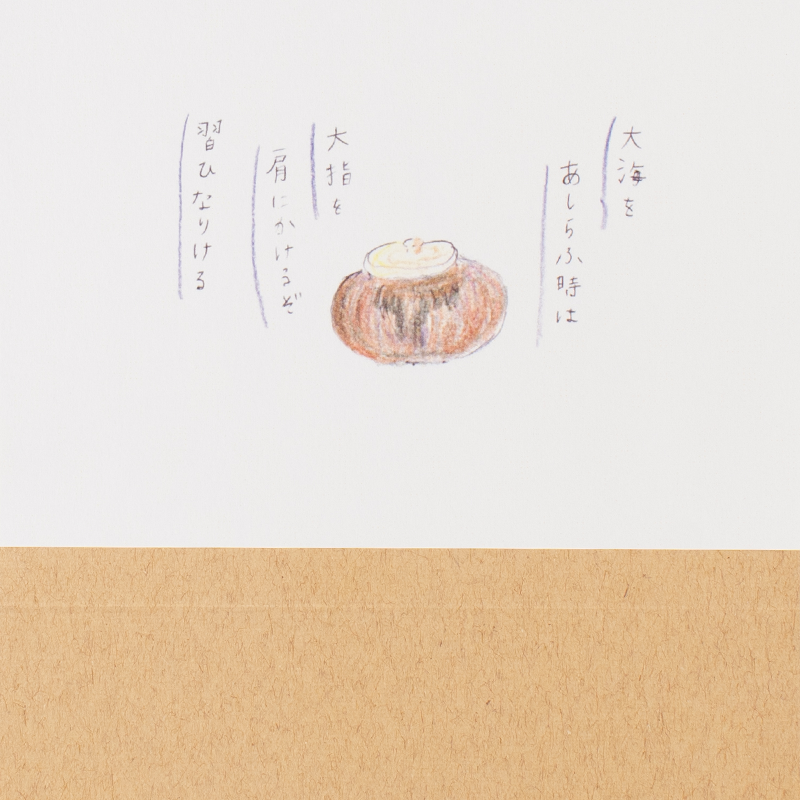 大海を
あしらふ時は
大指を
肩にかけるぞ
習ひなりける